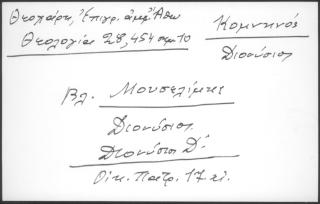 Θεοχάρη, Ἐπιγρ. ἀμφ. Ἄθω
Θεολογία 28, 454 σημ 10
Κομνηνός
Διονύσιος
Βλ. Μουσελίμης
Διονύσιος
Διονύσιος Δ΄
Οἰκ. Πατρ. 17 αἰ.